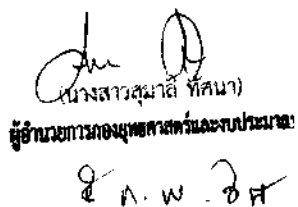 (นางสาวสุมาลี ทัศนา)
ผู้อำนวยการกองยุทธศาสตร์และงบประมาณ
ก.พ.